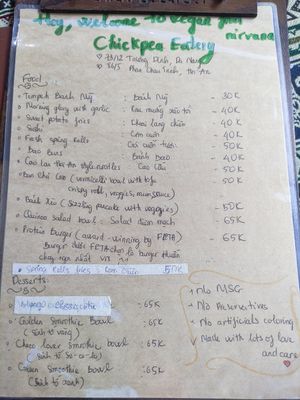 Hey, welcome to vegan
nirvana
Chickpea Eatery
Food
Tempeh Banh Mỳ : Bánh Mỳ - 30K
Morning glory with garlic : Rau muống xào tỏi - 40K
Sweet potato fries : Khoai lang chiên - 40K
Sushi : Cơm cuốn - 40K
Fresh spring rolls : Cuốn tươi - 50K
Bao Buns : Bánh Bao - 40K
Cao lau Hoi An style noodles : Cao Lầu - 50K
Bun Cha Gio (vermicelli bowl with tofu - 50K
crispy roll, veggies, nuts sauce)
Bánh Xèo (Sizzling pancake with veggies) - 50K
Quinoa salad bowl : Salad diêm mạch - 65K
Protein Burger (award-winning by PETA) - 65K
Burger được PETA chọn là burger thuần
chay ngon nhất VN
Spring Rolls fries : Ram chiên 50K
Desserts:
: 65K
Golden Smoothie Bowl : 65K
(Sinh tố vàng)
Choco lover Smoothie bowl : 65K
(Sinh tố Sô-cô-la)
Green Smoothie Bowl : 65K
(Sinh tố xanh)
+ No MSG
+ No Preservatives
+ No artificials coloring
✓ Made with lots of love
and care